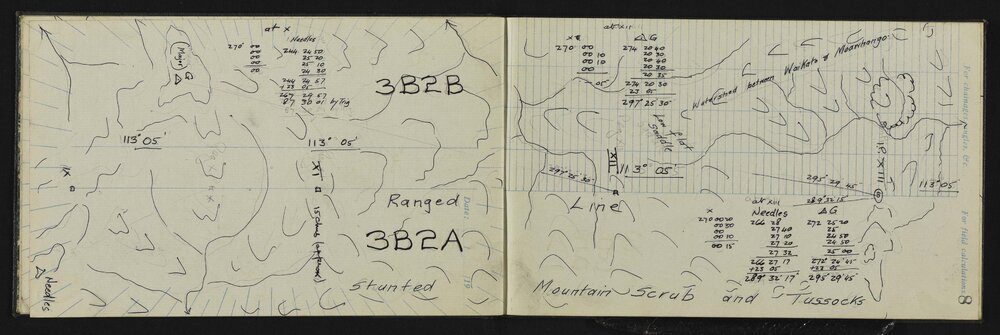 at X
Needles
270° 00
00
00
00
00
244 24 50
25 20
25 10
24 30
244 24 57
+23 05
267 29 57
87 30 01 by Trig
Major
△ G
3B2B
113° 05'
113° 05'
IX
XI
15 chns (approx)
Ranged
3B2A
Stunted
△ Needles
Date:
19
at XII
△G
270 00
00 10
00 10
00
05
274 20 40
20 30
20 40
20 30
20 35
274 20 30
23 05
297° 25 30"
Watershed between Waikato & Moawhango
Low flat
Saddle
XII
113° 05'
297° 25' 30"
Line
P. XIII
295° 29' 45
289° 32' 15"
113° 05'
X
270 00 20
00 30
00
00 10
00 15"
at XIII
Needles
266 28
27 40
27 10
27 20
27 32
266 27 17
+23 05
289° 32' 17"
△G
272 25 20
25
24 50
24 50
25 00
272° 24' 45"
+23 05
295° 29' 45"
Mountain Scrub and Tussocks
For field calculations
8